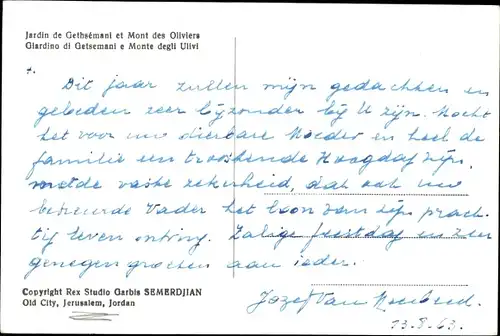 Jardin de Gethsémani et Mont des Oliviers
Giardino di Getsemani e Monte degli Ulivi
+.
Dit jaar zullen mijn gedachten en
gebeden zeer bijzonder bij U zijn. Mocht
het voor uw dierbare Moeder en heel de
familie een troostende Hoogdag zijn,
met de vaste zekerheid, dat ook uw
betreurde Vader het loon van zijn prach-
tig leven ontving. Zalige feestdag en zeer
genegen groeten aan ieder.
Copyright Rex Studio Garbis SEMERDJIAN
Old City, Jerusalem, Jordan
Jozef Van
13.8.63.